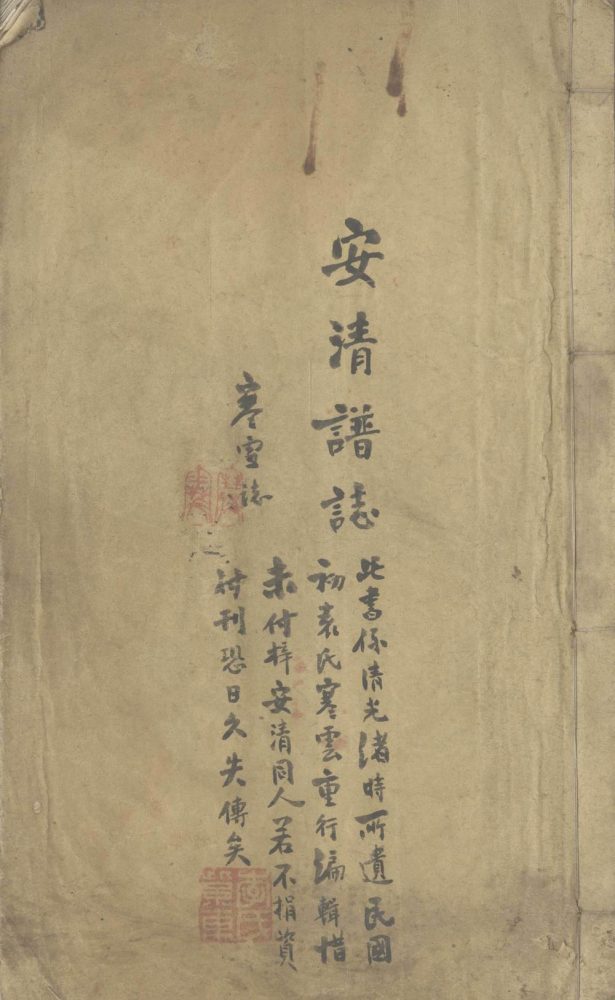 安清譜誌
此書係清光緒時所遺民國
初袁氏寒雲重行編輯惜
未付梓安清同人若不捐資
刊恐日久失傳矣
寒雲誌